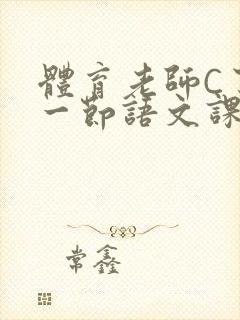 體育老師C
一節語文課
常鑫